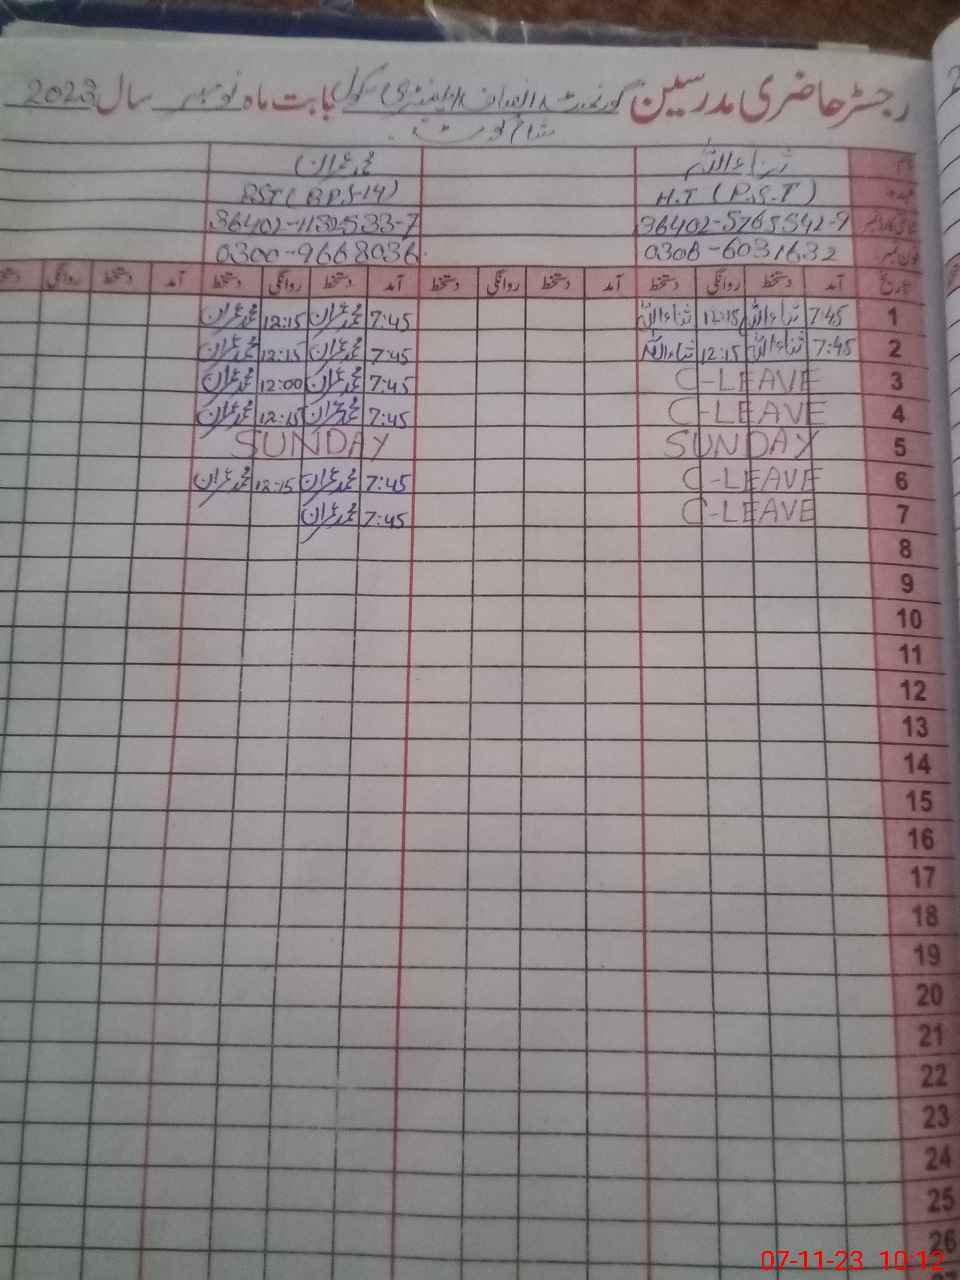 رجسٹر حاضری مدرسین گورنمنٹ ایلیمنٹری سکول بابت ماہ نومبر سال 2023
نام ثناء اللہ محمد عمران
عہدہ H.T (P.S.T) PST (BPS-14)
36402-5765342-9 36402-1132533-7
فون نمبر 0306-6031632 0300-9668036
تاریخ آمد دستخط روانگی دستخط آمد دستخط روانگی دستخط آمد دستخط روانگی دستخط آمد دستخط روانگی دستخط
1 7:45 ثناء اللہ 12:15 ثناء اللہ 7:45 محمد عمران 12:15 محمد عمران
2 7:45 ثناء اللہ 12:15 ثناء اللہ 7:45 محمد عمران 12:15 محمد عمران
3 C-LEAVE 7:45 محمد عمران 12:00 محمد عمران
4 C-LEAVE 7:45 محمد عمران 12:15 محمد عمران
5 SUNDAY SUNDAY
6 C-LEAVE 7:45 محمد عمران 12:15 محمد عمران
7 C-LEAVE 7:45 محمد عمران
8
9
10
11
12
13
14
15
16
17
18
19
20
21
22
23
24
25
26
07-11-23 10:12